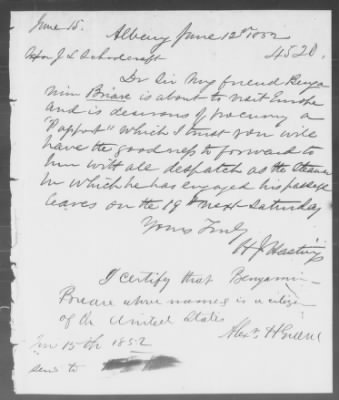 June 15.
Albany June 12th 1852
4520.
Hon J L Schoolcraft
Dr Sir My friend Benja
min Briare is about to visit Europe
and is desirous of procuring a
"Passport" which I trust you will
have the goodness to forward to
him with all despatch as the Steamer
in which he has engaged his passage
leaves on the 19th next Saturday
Yours Truly
H J Hastings
I certify that Benjamin
above named is a citizen
of the United States
Alexr H Greene
June 15th 1852
sent to